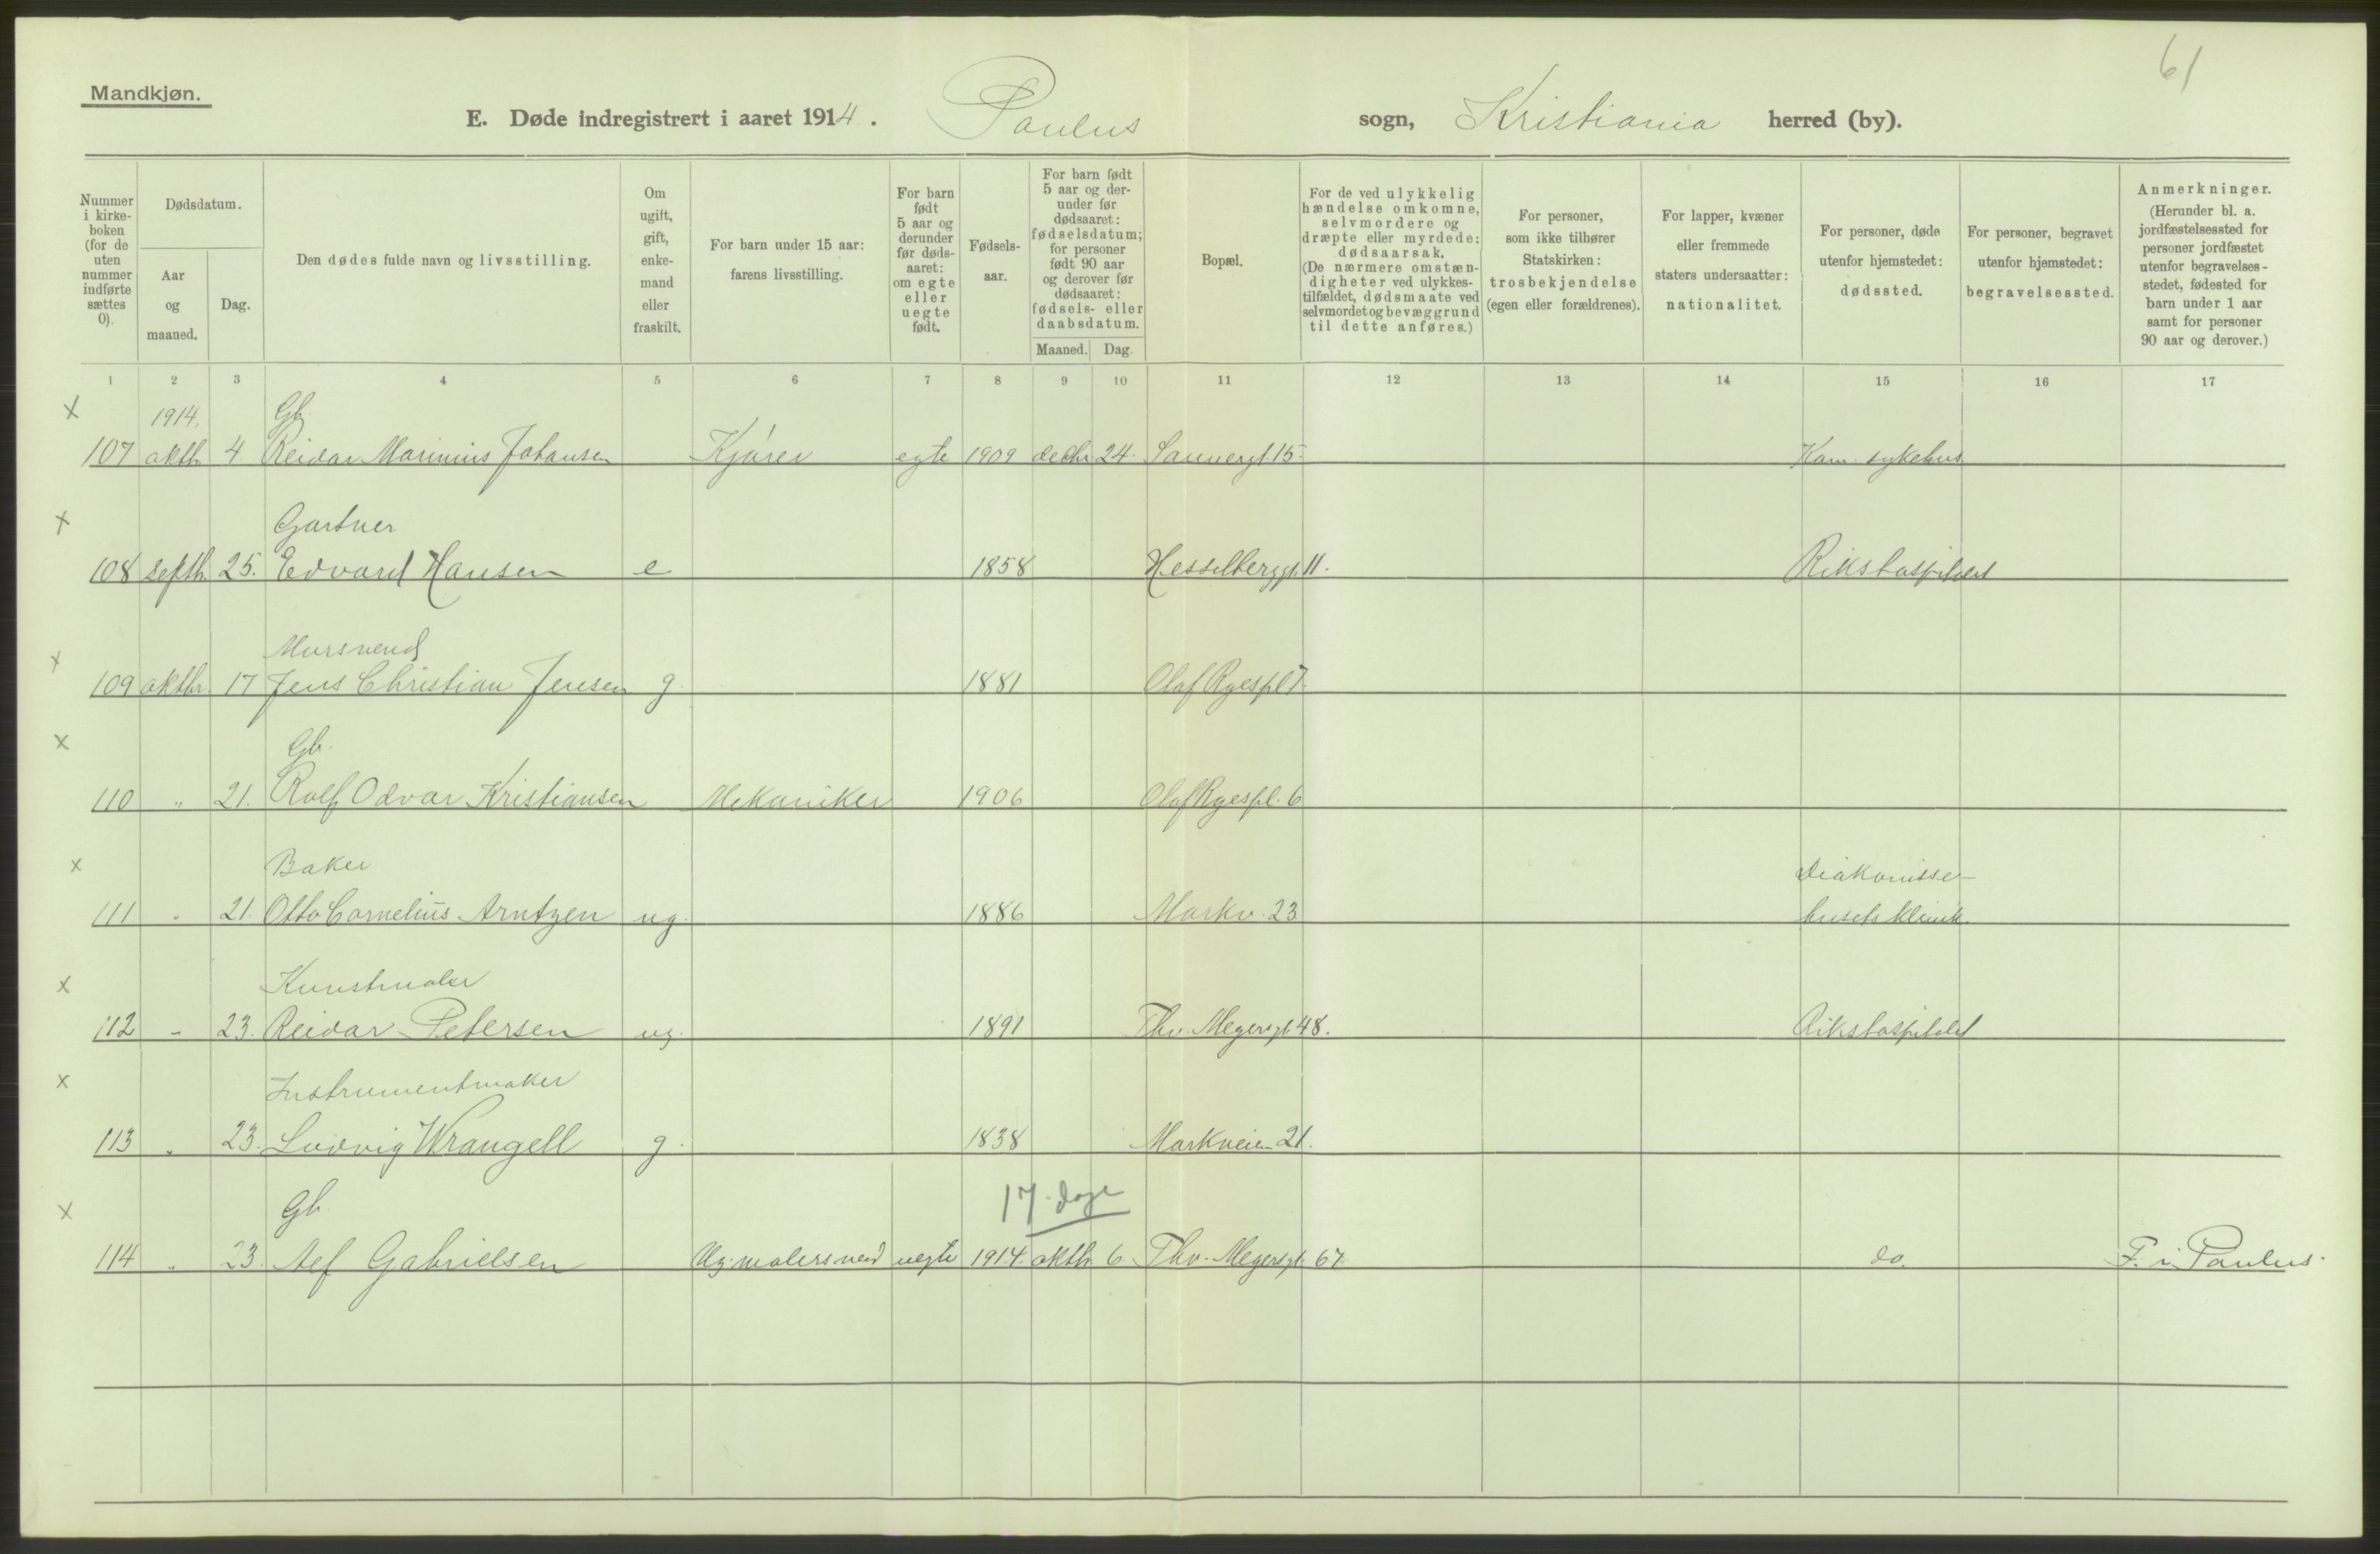 61
Mandkjøn.
E. Døde indregistrert i aaret 1914. Paulus sogn, Kristiania herred (by).
Nummer i kirke- boken (for de uten nummer indførte sættes 0).
Dødsdatum.
Aar og maaned.
Dag.
Den dødes fulde navn og livsstilling.
Om ugift, gift, enke- mand eller fraskilt.
For barn under 15 aar: farens livsstilling.
For barn født 5 aar og derunder før døds- aaret: om egte eller uegte født.
Fødsels- aar.
For barn født 5 aar og der- under før dødsaaret: fødselsdatum; for personer født 90 aar og derover før dødsaaret: fødsels- eller daabsdatum.
Maaned. Dag.
Bopæl.
For de ved ulykkelig hændelse omkomne, selvmordere og dræpte eller myrdede: dødsaarsak. (De nærmere omstæn- digheter ved ulykkes- tilfældet, dødsmaate ved selvmordet og bevæggrund til dette anføres.)
For personer, som ikke tilhører Statskirken: trosbekjendelse (egen eller forældrenes).
For lapper, kvæner eller fremmede staters undersaatter: nationalitet.
For personer, døde utenfor hjemstedet: dødssted.
For personer, begravet utenfor hjemstedet: begravelsessted.
Anmerkninger. (Herunder bl. a. jordfæstelsessted for personer jordfæstet utenfor begravelses- stedet, fødested for barn under 1 aar samt for personer 90 aar og derover.)
1 2 3 4 5 6 7 8 9 10 11 12 13 14 15 16 17
x 1914. Gb.
107 oktb. 4 Reidar Marinius Johansen Kjører egte 1909 decbr 24. Sannergt. 15. Kom. sykehus
x Gartner
108 septb. 25. Edvard Hansen e 1858 Hesselberggt. 11. Rikshospitalet
x Mursvend
109 oktbr. 17 Jens Christian Jensen g. 1881 Olaf Ryespl 7.
x Gb.
110 " 21. Rolf Odvar Kristiansen Mekaniker 1906 Olaf Ryespl. 6
x Baker Diakonisse-
111 " 21. Otto Cornelius Arntzen ug. 1886 Markv. 23 husets klinik.
x Kunstmaler
112 " 23. Reidar Petersen ug. 1891 Thv. Meyersgt. 48. Rikshospitalet
x Instrumentmaker
113 " 23. Ludvig Wrangell g. 1838 Markveien 21.
x Gb. 17 dage
114 " 23. Alf Gabrielsen Ug. malersvend uegte 1914. oktb. 6 Thv. Meyersgt. 67 do. F. i Paulus.